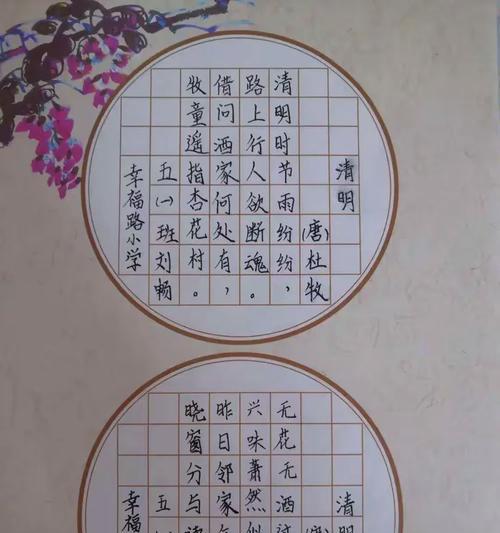 清明
(唐)杜牧
清明时节雨纷纷，
路上行人欲断魂。
借问洒家何处有，
牧童遥指杏花村。
五(一)班刘畅
幸福路小学
清明
无花无酒过
兴味萧然似
昨日邻家乞
晓窗分与读
五(一)
幸福